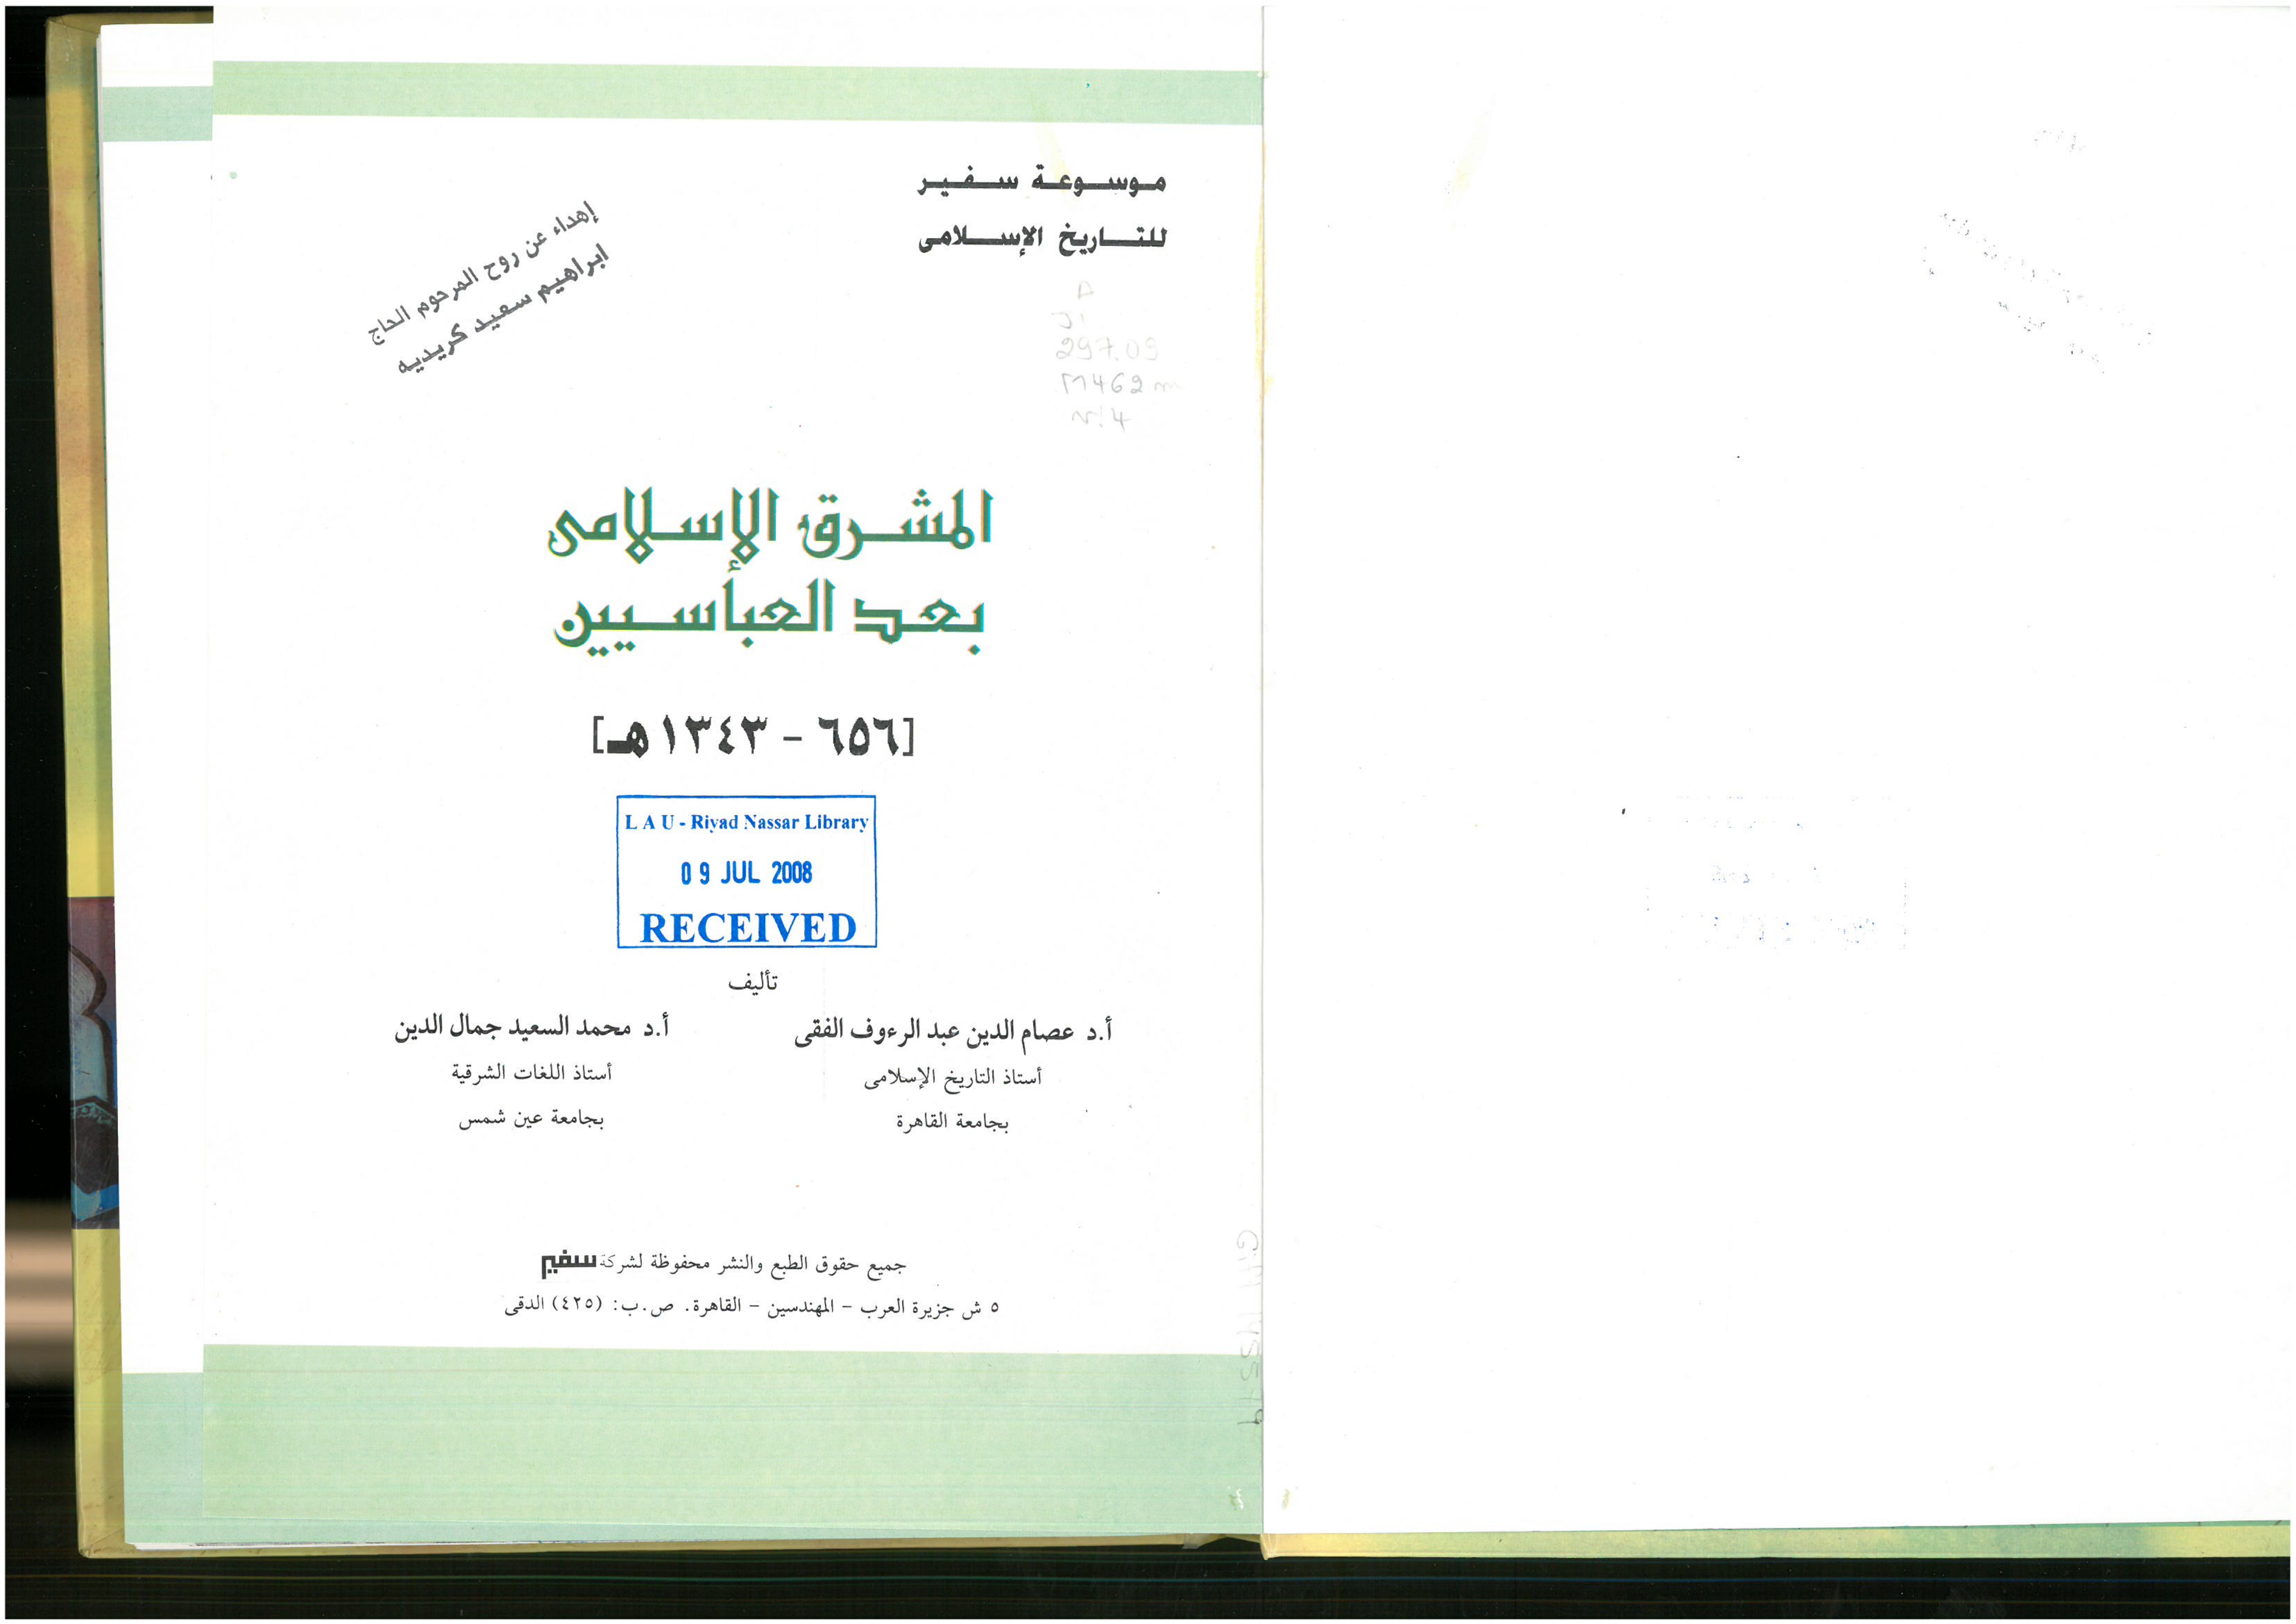 موسوعة سفير
للتاريخ الإسلامى
إهداء عن روح المرحوم الحاج
ابراهيم سعيد كريديه
297.09
M462m
v.4
المشرق الإسلامى
بعد العباسيين
[٦٥٦ - ١٣٤٣هـ]
L A U - Riyad Nassar Library
09 JUL 2008
RECEIVED
تأليف
أ.د عصام الدين عبد الرءوف الفقى
أستاذ التاريخ الإسلامى
بجامعة القاهرة
أ.د محمد السعيد جمال الدين
أستاذ اللغات الشرقية
بجامعة عين شمس
جميع حقوق الطبع والنشر محفوظة لشركة سفير
٥ ش جزيرة العرب - المهندسين - القاهرة. ص.ب: (٤٢٥) الدقى